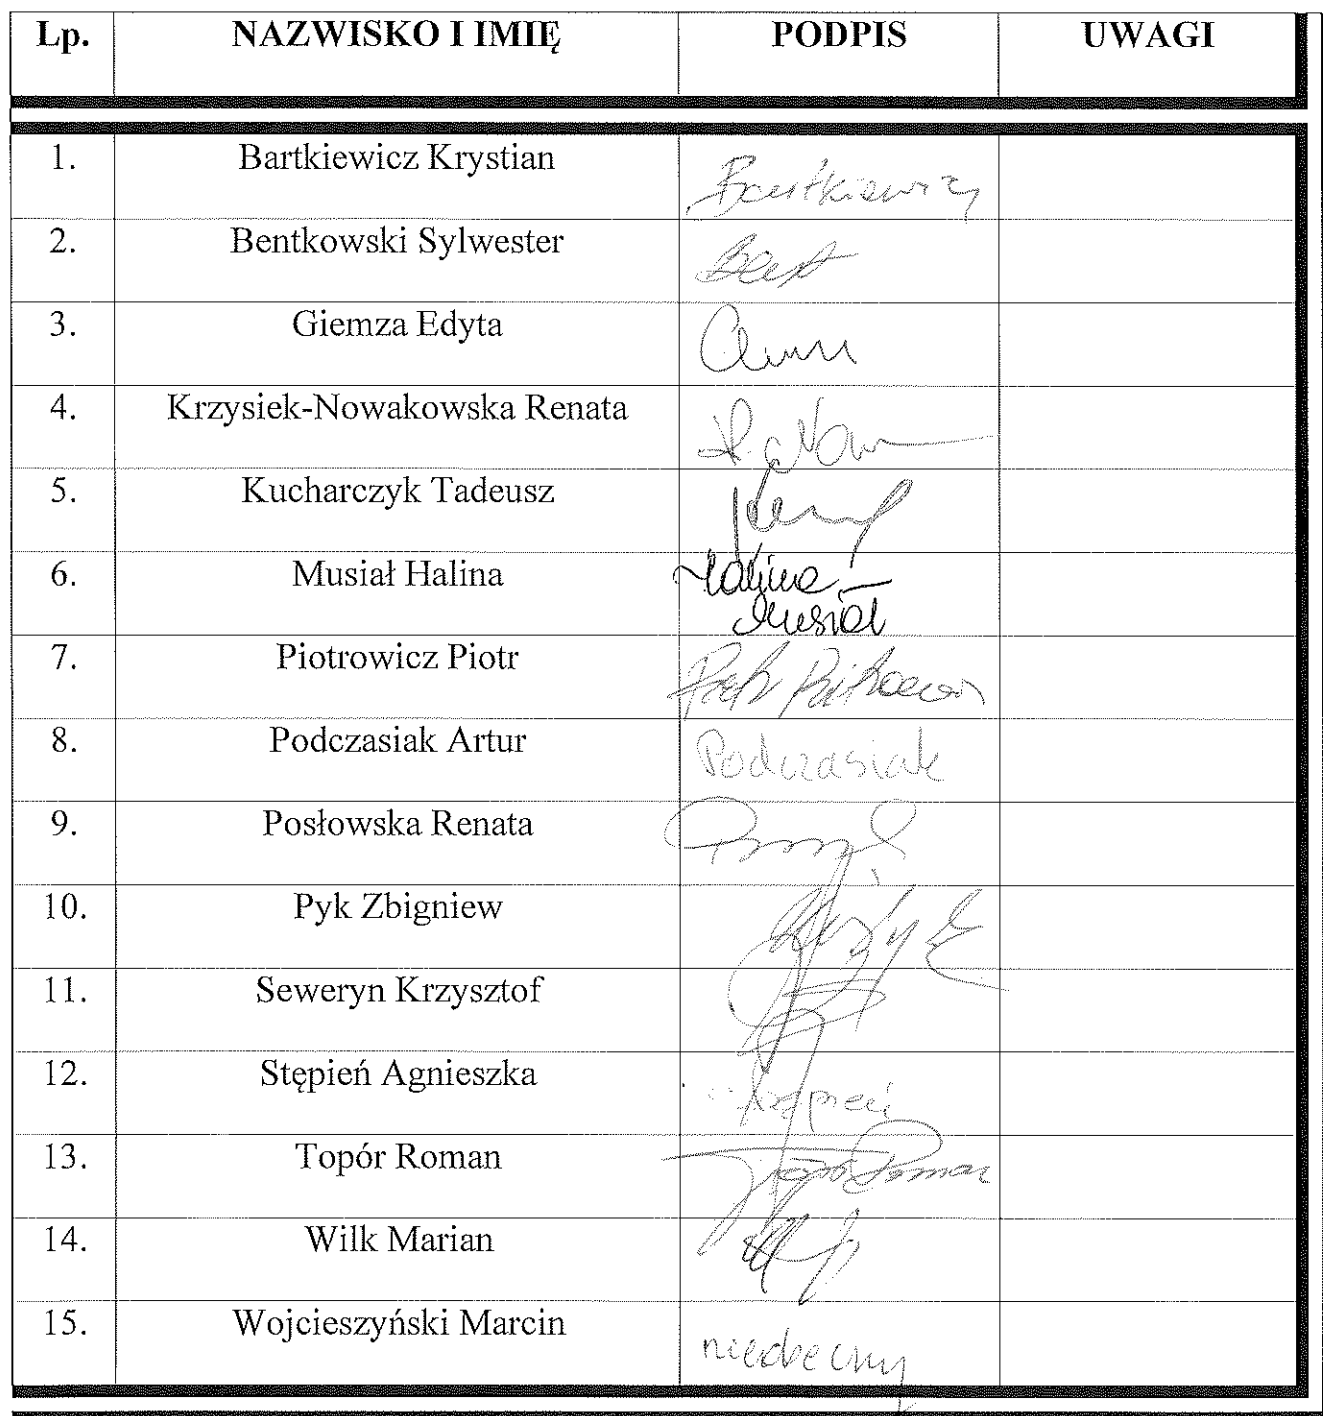 Lp. NAZWISKO I IMIĘ PODPIS UWAGI
1. Bartkiewicz Krystian Bartkiewicz
2. Bentkowski Sylwester
3. Giemza Edyta
4. Krzysiek-Nowakowska Renata
5. Kucharczyk Tadeusz
6. Musiał Halina Halina
Musiał
7. Piotrowicz Piotr Piotr Piotrowicz
8. Podczasiak Artur Podczasiak
9. Posłowska Renata
10. Pyk Zbigniew
11. Seweryn Krzysztof
12. Stępień Agnieszka Stępień
13. Topór Roman Topór Roman
14. Wilk Marian
15. Wojcieszyński Marcin nieobecny